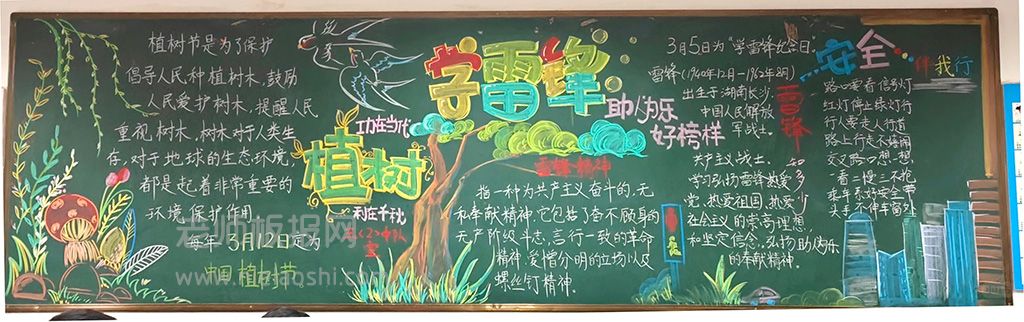 植树节是为了保护
倡导人民种植树木,鼓励
人民爱护树木,提醒人民
重视树木,树木对于人类生
存,对于地球的生态环境,
都是起着非常重要的
环境保护作用
每年3月12日定为
中国植树节
老师板报网
www.laoshi.com
植树
功在当代
利在千秋
学雷锋
助人为乐
好榜样
雷锋精神
指一种为共产主义奋斗的,无
私奉献精神,它包括了奋不顾身的
无产阶级斗志,言行一致的革命
精神,爱憎分明的立场以及
螺丝钉精神。
3月5日为"学雷锋纪念日
雷锋(1940年12月—1962年8月)
出生于湖南长沙,
中国人民解放
军战士,
共产主义战士,
学习弘扬雷锋热爱
党,热爱祖国,热爱
社会主义的崇高理想
和坚定信念,弘扬助人为乐
的奉献精神。
雷锋
安全
伴我行
路口要看信号灯
红灯停止绿灯行
行人要走人行道
路上行走不嬉闹
交叉路口想一想
一看二慢三不抢
乘车系好安全带
头手不伸车窗外